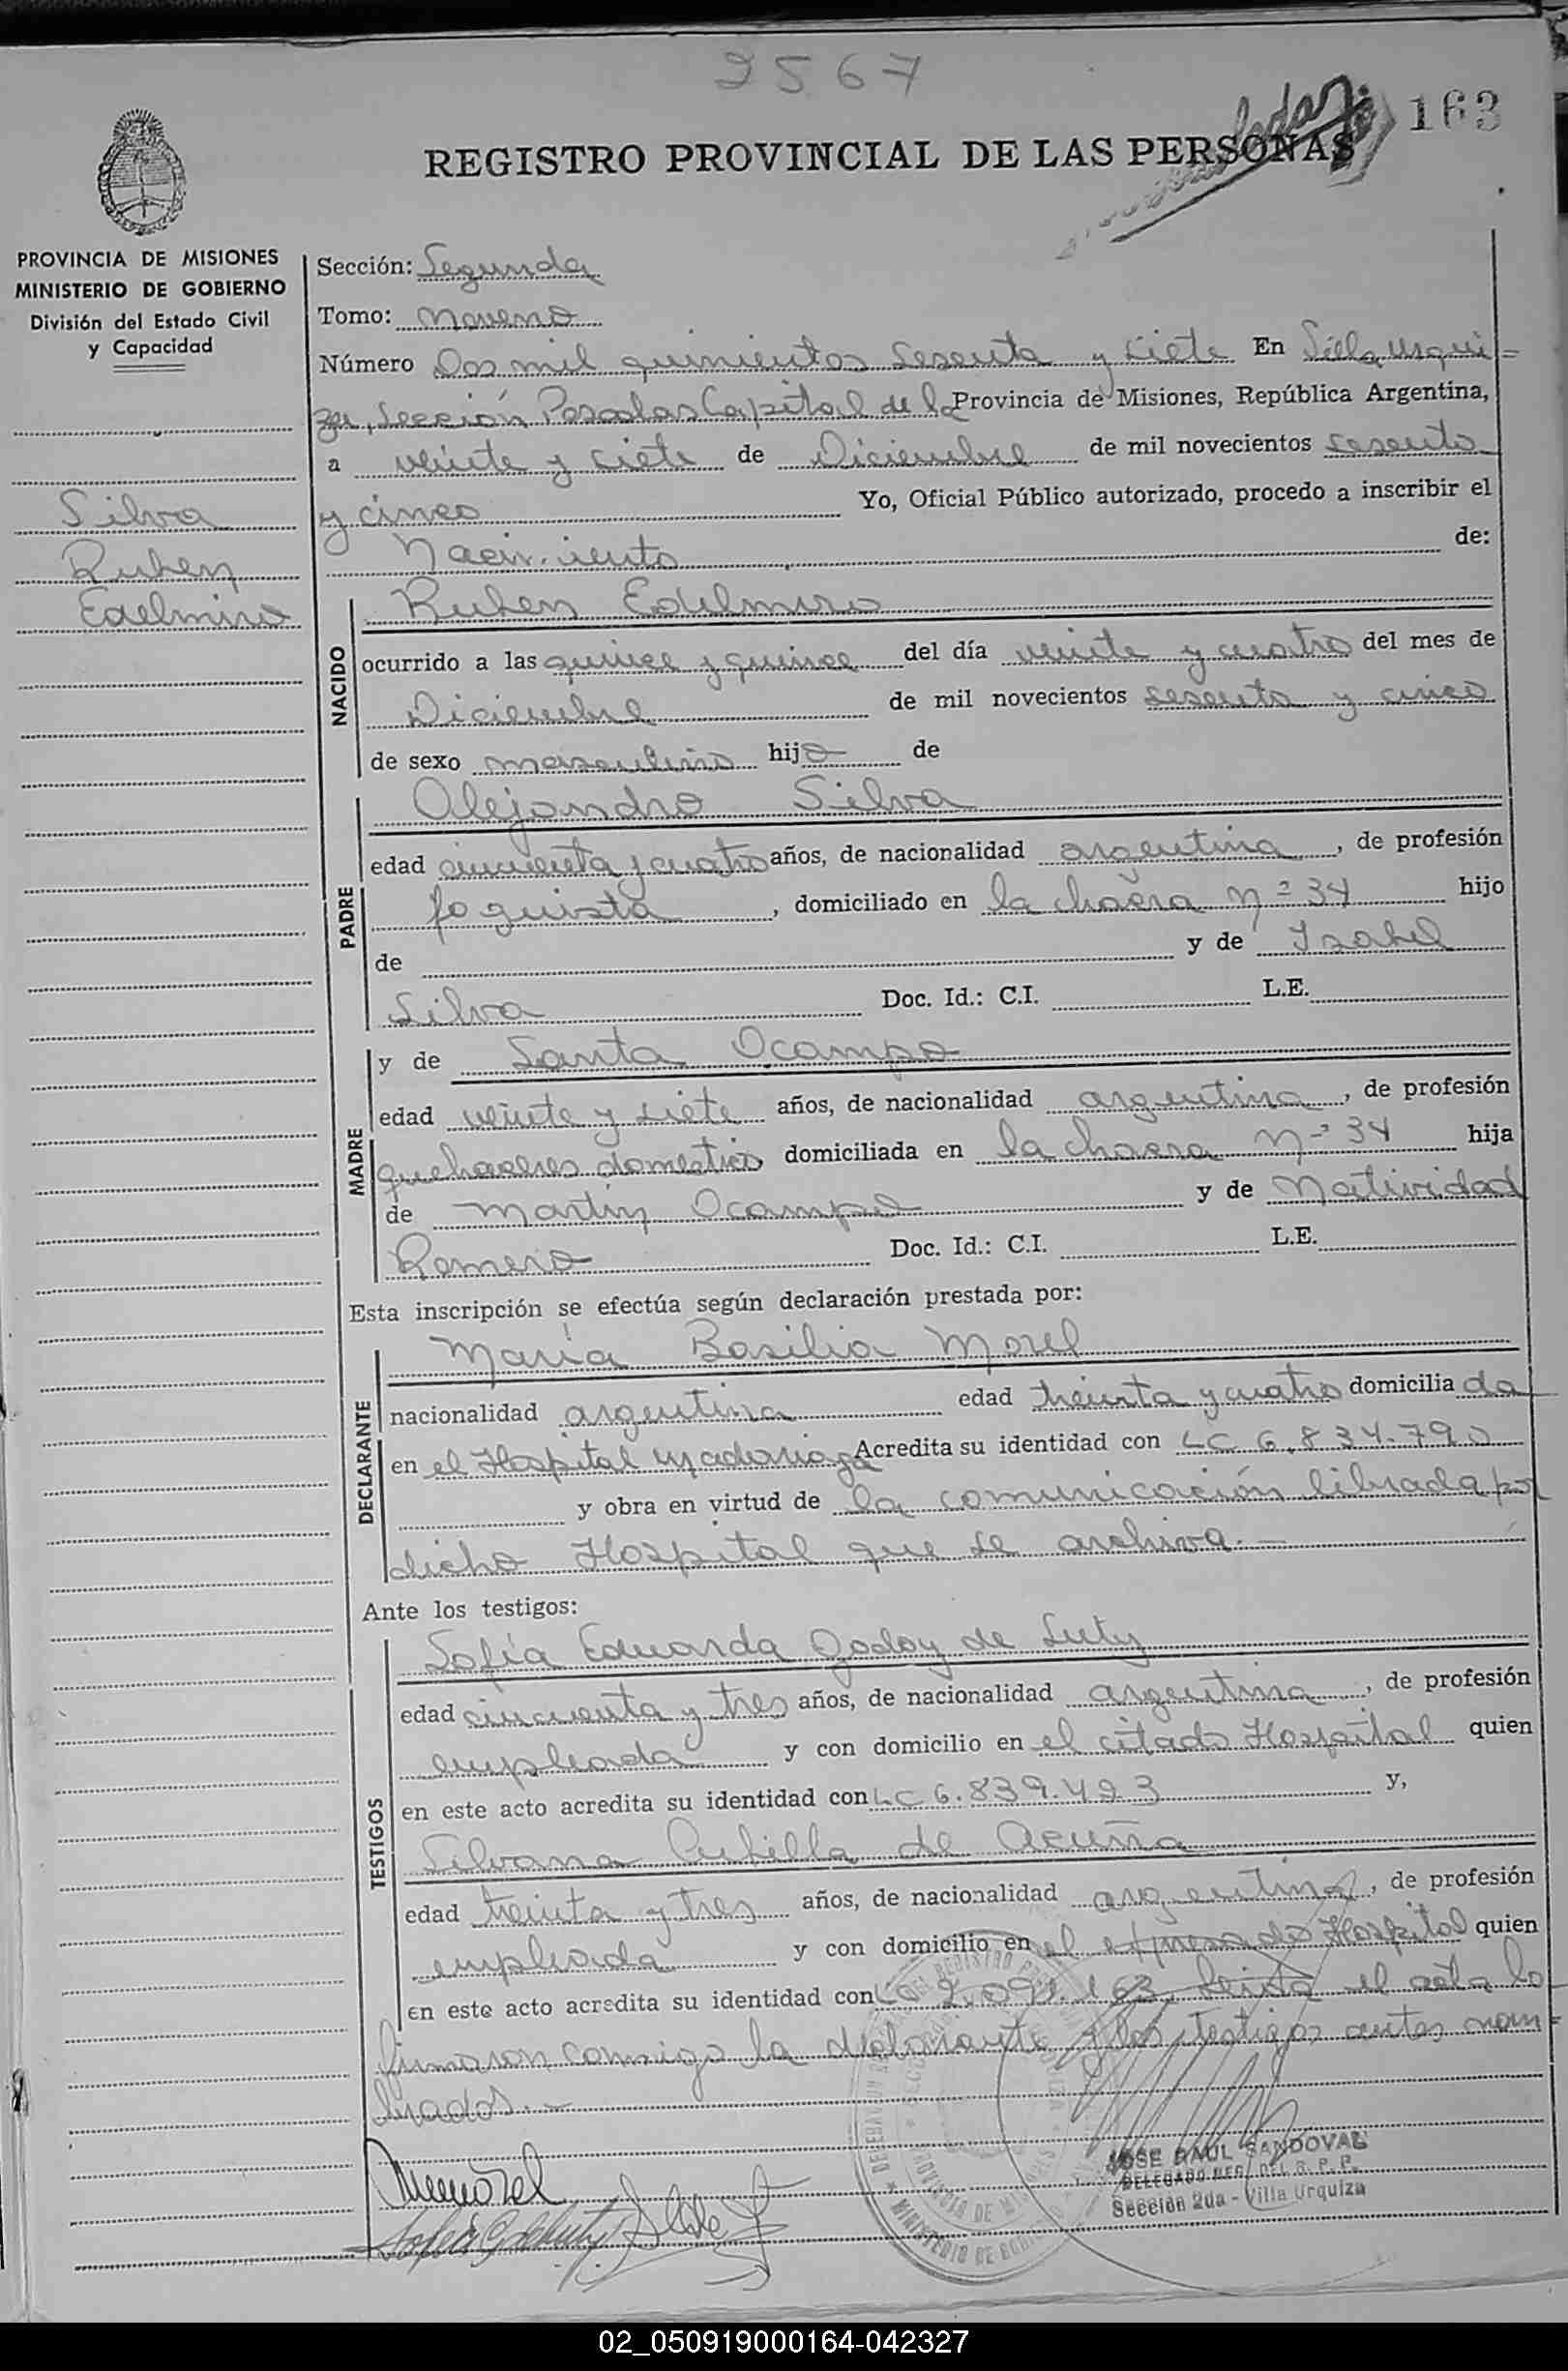 2567
163
REGISTRO PROVINCIAL DE LAS PERSONAS
PROVINCIA DE MISIONES
MINISTERIO DE GOBIERNO
División del Estado Civil
y Capacidad
Silva
Ruben
Edelmiro
Sección: Segunda
Tomo: Noveno
Número Dos mil quinientos sesenta y siete En Villa Urqui=
za, Sección Posadas Capital de la Provincia de Misiones, República Argentina,
a veinte y siete de Diciembre de mil novecientos sesenta
y cinco Yo, Oficial Público autorizado, procedo a inscribir el
Nacimiento de:
NACIDO
Ruben Edelmiro
ocurrido a las quince y quince del día veinte y cuatro del mes de
Diciembre de mil novecientos sesenta y cinco
de sexo masculino hijo de
PADRE
Alejandro Silva
edad cincuenta y cuatro años, de nacionalidad argentina, de profesión
foguista, domiciliado en la chacra Nº 34 hijo
de y de Isabel
Silva Doc. Id.: C.I. L.E.
MADRE
y de Santa Ocampo
edad veinte y siete años, de nacionalidad argentina, de profesión
quehaceres domestico domiciliada en la chacra Nº 34 hija
de Martin Ocampo y de Natividad
Romero Doc. Id.: C.I. L.E.
Esta inscripción se efectúa según declaración prestada por:
DECLARANTE
María Basilia Morel
nacionalidad argentina edad treinta y cuatro domiciliada
en el Hospital Madariaga Acredita su identidad con LC 6.834.790
y obra en virtud de la comunicación librada por
dicho Hospital que se archiva.-
Ante los testigos:
TESTIGOS
Sofía Eduarda Godoy de Luty
edad cincuenta y tres años, de nacionalidad argentina, de profesión
empleada y con domicilio en el citado Hospital quien
en este acto acredita su identidad con LC 6.839.493 y,
Silvana Cubilla de Acuña
edad treinta y tres años, de nacionalidad argentina, de profesión
empleada y con domicilio en el expresado Hospital quien
en este acto acredita su identidad con LC 2.091.163. Leida el acta lo
firmaron conmigo la declarante y los testigos antes nom=
brados.-
JOSE RAUL SANDOVAL
DELEGADO REG. DEL R. P. P.
Sección 2da - Villa Urquiza
02_050919000164-042327